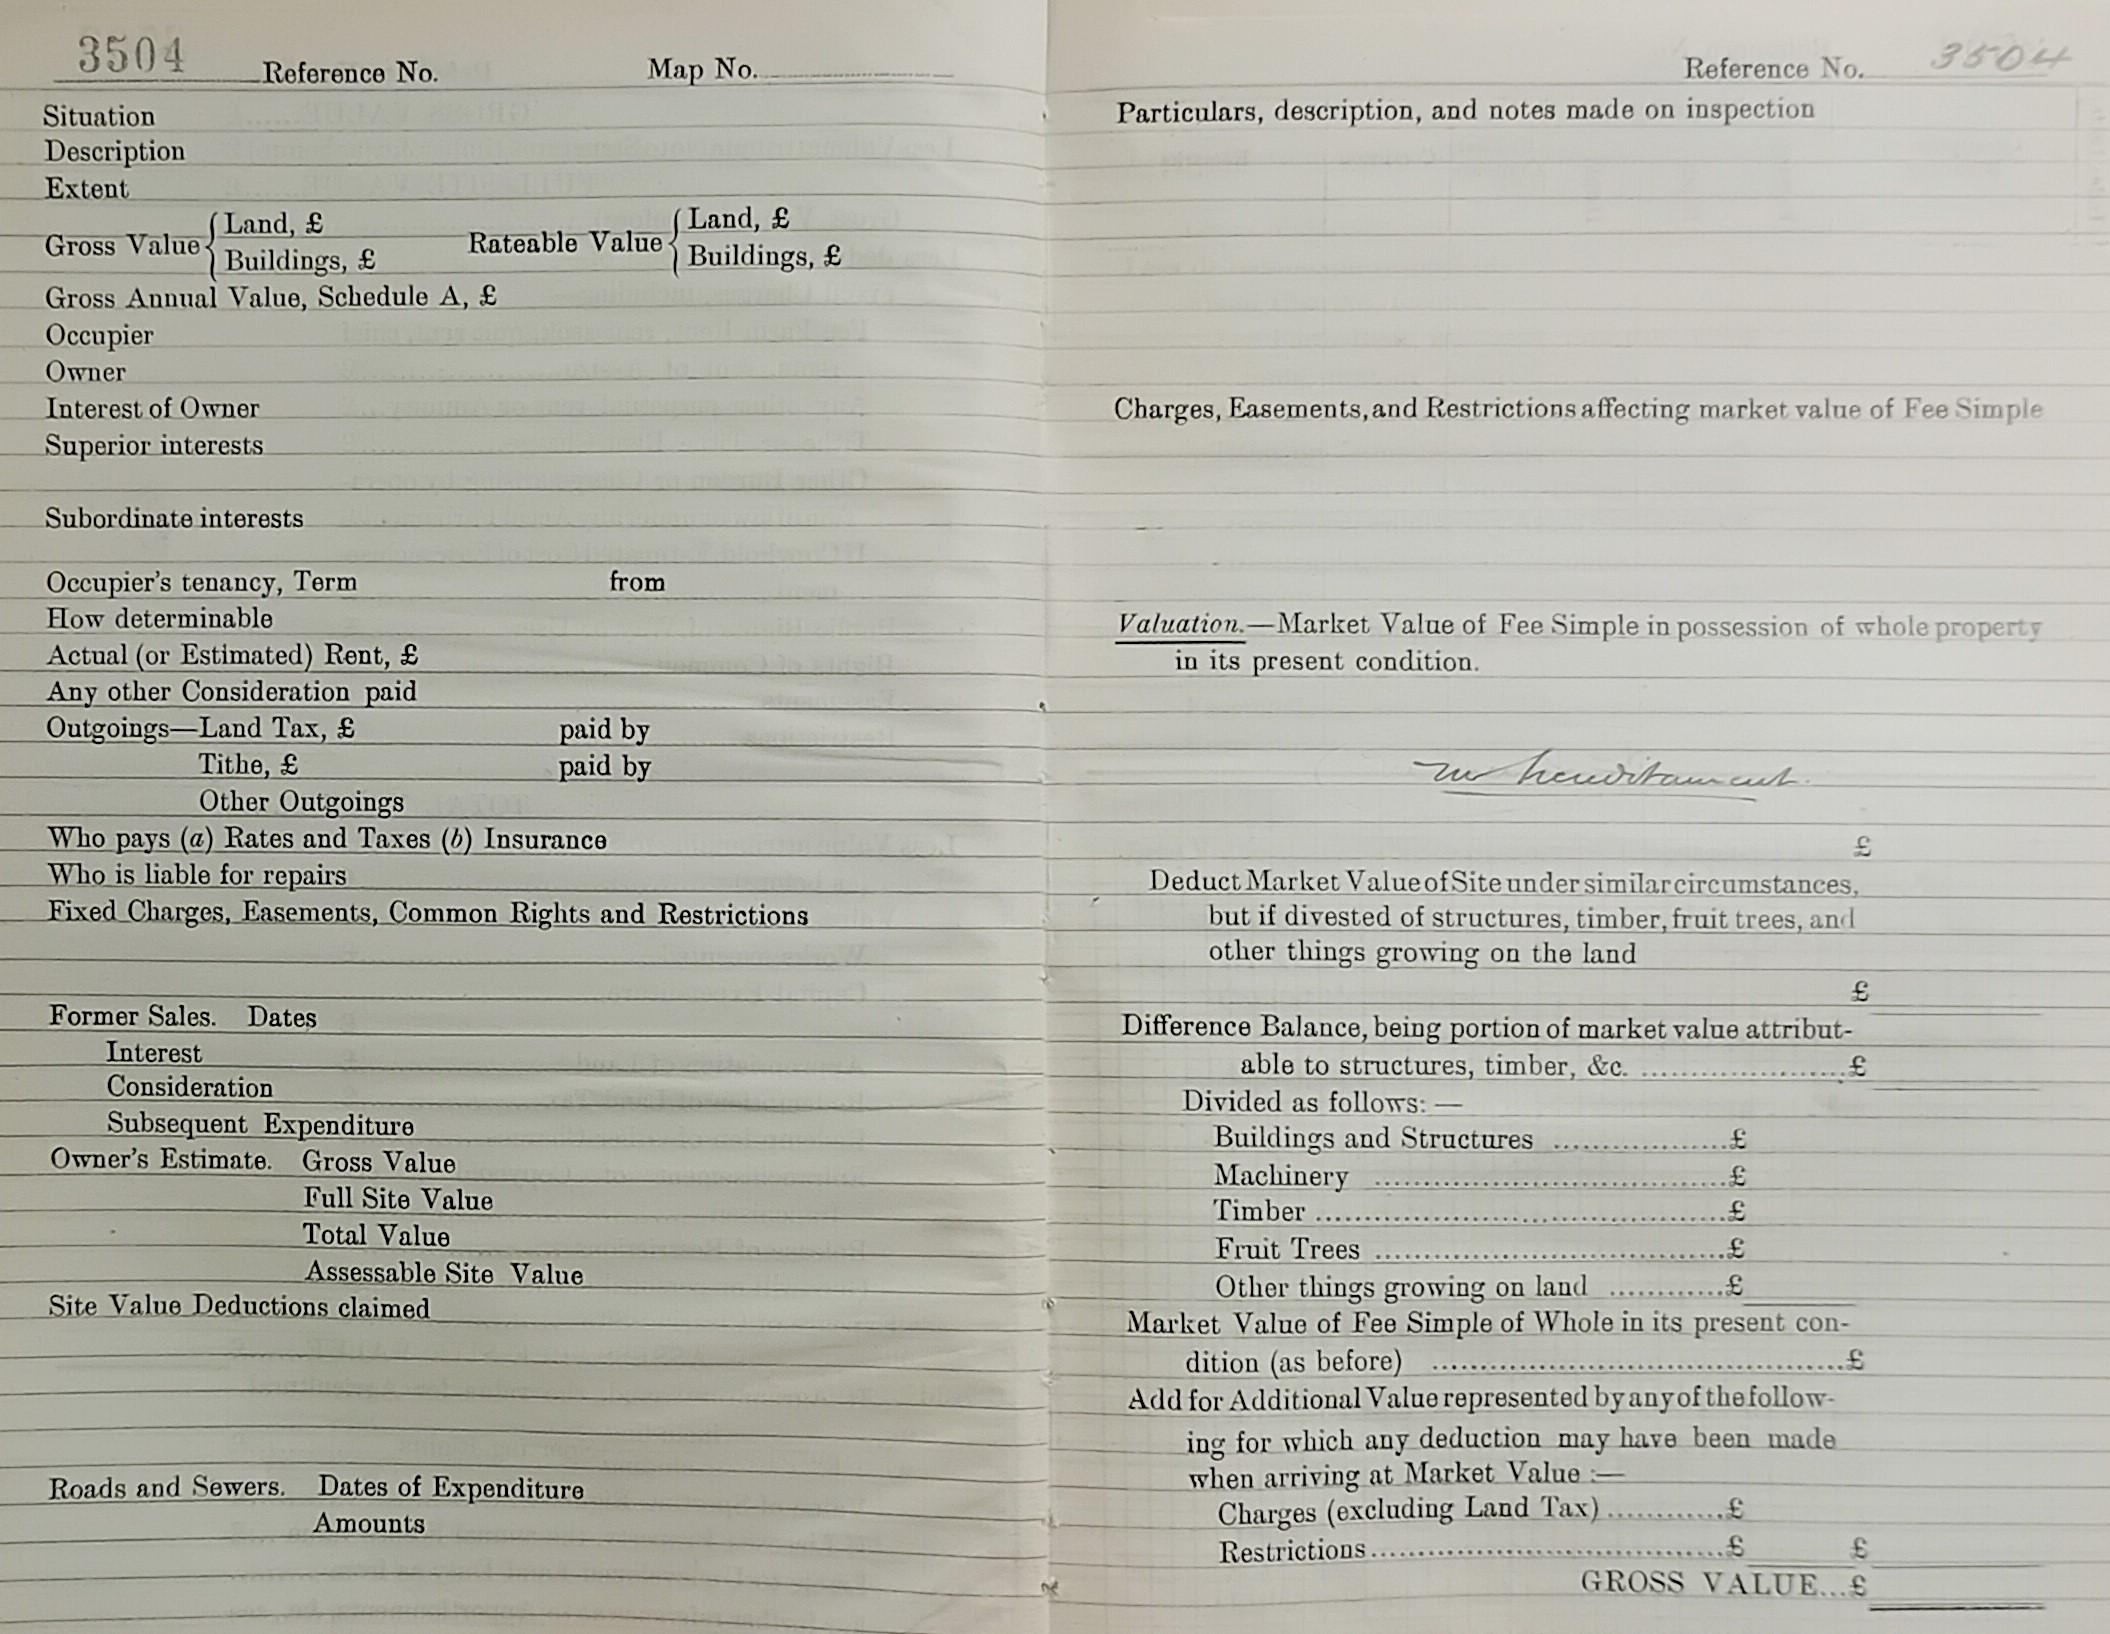 3504 Reference No. Map No.
Situation
Description
Extent
Gross Value { Land, £
Buildings, £
Rateable Value { Land, £
Buildings, £
Gross Annual Value, Schedule A, £
Occupier
Owner
Interest of Owner
Superior interests
Subordinate interests
Occupier's tenancy, Term from
How determinable
Actual (or Estimated) Rent, £
Any other Consideration paid
Outgoings—Land Tax, £ paid by
Tithe, £ paid by
Other Outgoings
Who pays (a) Rates and Taxes (b) Insurance
Who is liable for repairs
Fixed Charges, Easements, Common Rights and Restrictions
Former Sales. Dates
Interest
Consideration
Subsequent Expenditure
Owner's Estimate. Gross Value
Full Site Value
Total Value
Assessable Site Value
Site Value Deductions claimed
Roads and Sewers. Dates of Expenditure
Amounts
Reference No. 3504
Particulars, description, and notes made on inspection
Charges, Easements, and Restrictions affecting market value of Fee Simple
Valuation.—Market Value of Fee Simple in possession of whole property
in its present condition.
no hereditament.
£
Deduct Market Value of Site under similar circumstances,
but if divested of structures, timber, fruit trees, and
other things growing on the land
£
Difference Balance, being portion of market value attribut-
able to structures, timber, &c. ....................£
Divided as follows: —
Buildings and Structures .................£
Machinery ..................................£
Timber .......................................£
Fruit Trees ..................................£
Other things growing on land ............£
Market Value of Fee Simple of Whole in its present con-
dition (as before) .......................................£
Add for Additional Value represented by any of the follow-
ing for which any deduction may have been made
when arriving at Market Value :—
Charges (excluding Land Tax) ............£
Restrictions ..................................£ £
GROSS VALUE...£